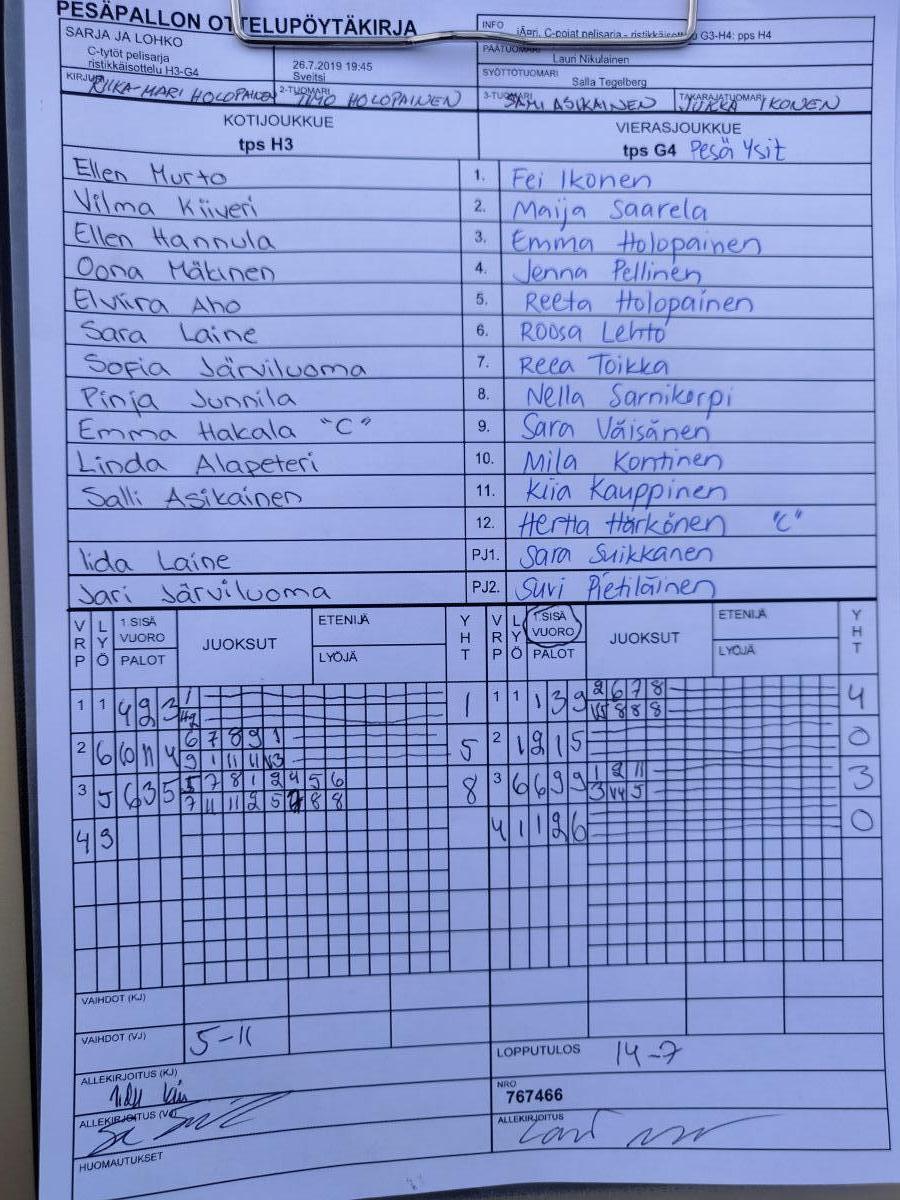 PESÄPALLON OTTELUPÖYTÄKIRJA
SARJA JA LOHKO
C-tytöt pelisarja
ristikkäisottelu H3-G4
26.7.2019 19:45
Sveitsi
INFO
C-pojat pelisarja - ristikkäisottelu G3-H4: pps H4
PÄÄTUOMARI
Lauri Nikulainen
SYÖTTÖTUOMARI
Salla Tegelberg
KIRJURI
RIIKA-MARI HOLOPAINEN
2-TUOMARI
TIMO HOLOPAINEN
3-TUOMARI
SAMI ASIKAINEN
TAKARAJATUOMARI
JUKKA IKONEN
KOTIJOUKKUE
tps H3
VIERASJOUKKUE
tps G4 Pesä Ysit
Ellen Murto 1. Fei Ikonen
Vilma Kiiveri 2. Maija Saarela
Ellen Hannula 3. Emma Holopainen
Oona Mäkinen 4. Jenna Pellinen
Elviira Aho 5. Reeta Holopainen
Sara Laine 6. Roosa Lehto
Sofia Järviluoma 7. Reea Toikka
Pinja Junnila 8. Nella Sarnikorpi
Emma Hakala "C" 9. Sara Väisänen
Linda Alapeteri 10. Mila Kontinen
Salli Asikainen 11. Kiia Kauppinen
12. Hertta Härkönen "C"
Iida Laine PJ1. Sara Suikkanen
Jari Järviluoma PJ2. Suvi Pietiläinen
VRP LYÖ 1.SISÄ VUORO PALOT JUOKSUT ETENIJÄ LYÖJÄ YHT VRP LYÖ 1.SISÄ VUORO PALOT JUOKSUT ETENIJÄ LYÖJÄ YHT
1 1 4 2 3 1 1 1 1 1 3 9 2 6 7 8 4
8 8 8
2 6 6 11 4 6 7 8 9 1 5 2 1 2 1 5 0
9 1 11 11
3 5 6 3 5 5 7 8 1 2 4 5 6 8 3 6 6 9 9 1 2 11 3
7 11 11 2 5 8 8
4 9 4 1 1 2 6 0
VAIHDOT (KJ)
VAIHDOT (VJ) 5-11
LOPPUTULOS 14-7
ALLEKIRJOITUS (KJ)
NRO
767466
ALLEKIRJOITUS (VJ)
ALLEKIRJOITUS
HUOMAUTUKSET